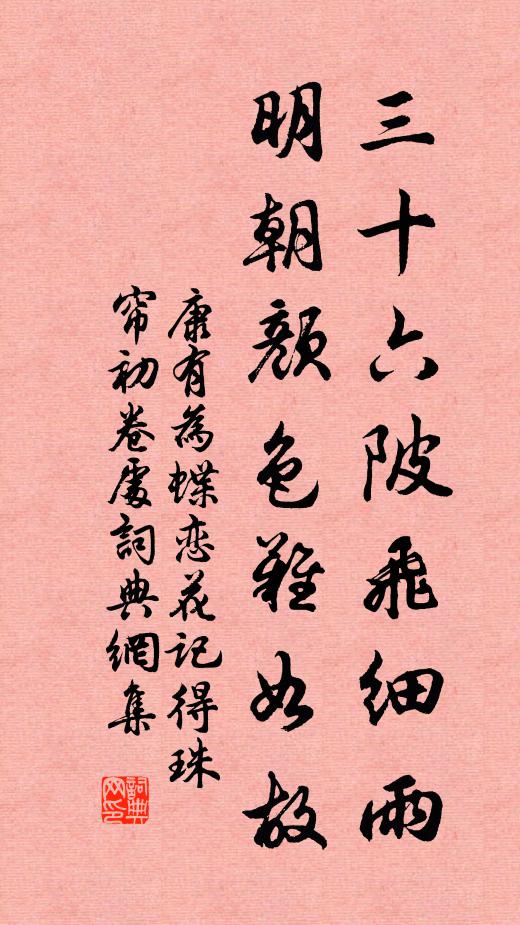 三十六陂飛細雨
明朝顏色難如故
康有為蝶恋花記得珠
帘初卷處詞典網集
詞典
网印